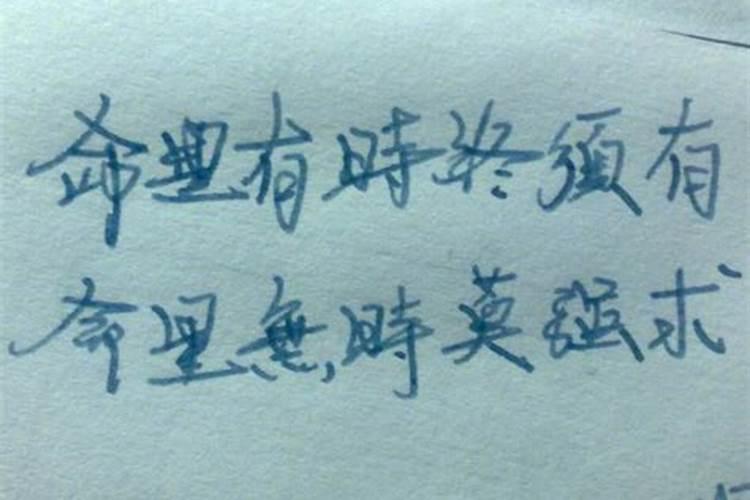 命里有時終須有
命里無時莫強求